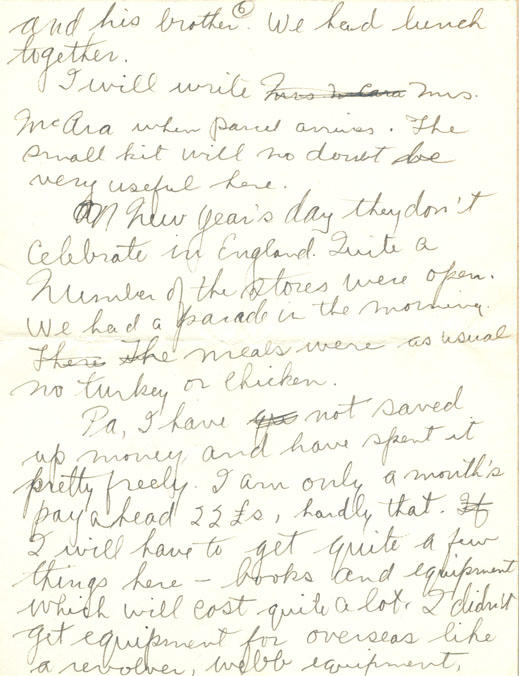 6
and his brother. We had lunch
together.
I will write Mrs McAra Mrs.
McAra when parcel arrives. The
small kit will no doubt be
very useful here.
On New Year's day they don't
celebrate in England. Quite a
number of the stores were open.
We had a parade in the morning.
There The meals were as usual
no turkey or chicken.
Pa, I have not saved
up money and have spent it
pretty freely. I am only a month's
pay ahead 22 £s, hardly that. If
I will have to get quite a few
things here - books and equipment
which will cost quite a lot. I didn't
get equipment for overseas like
a revolver, webb equipment,